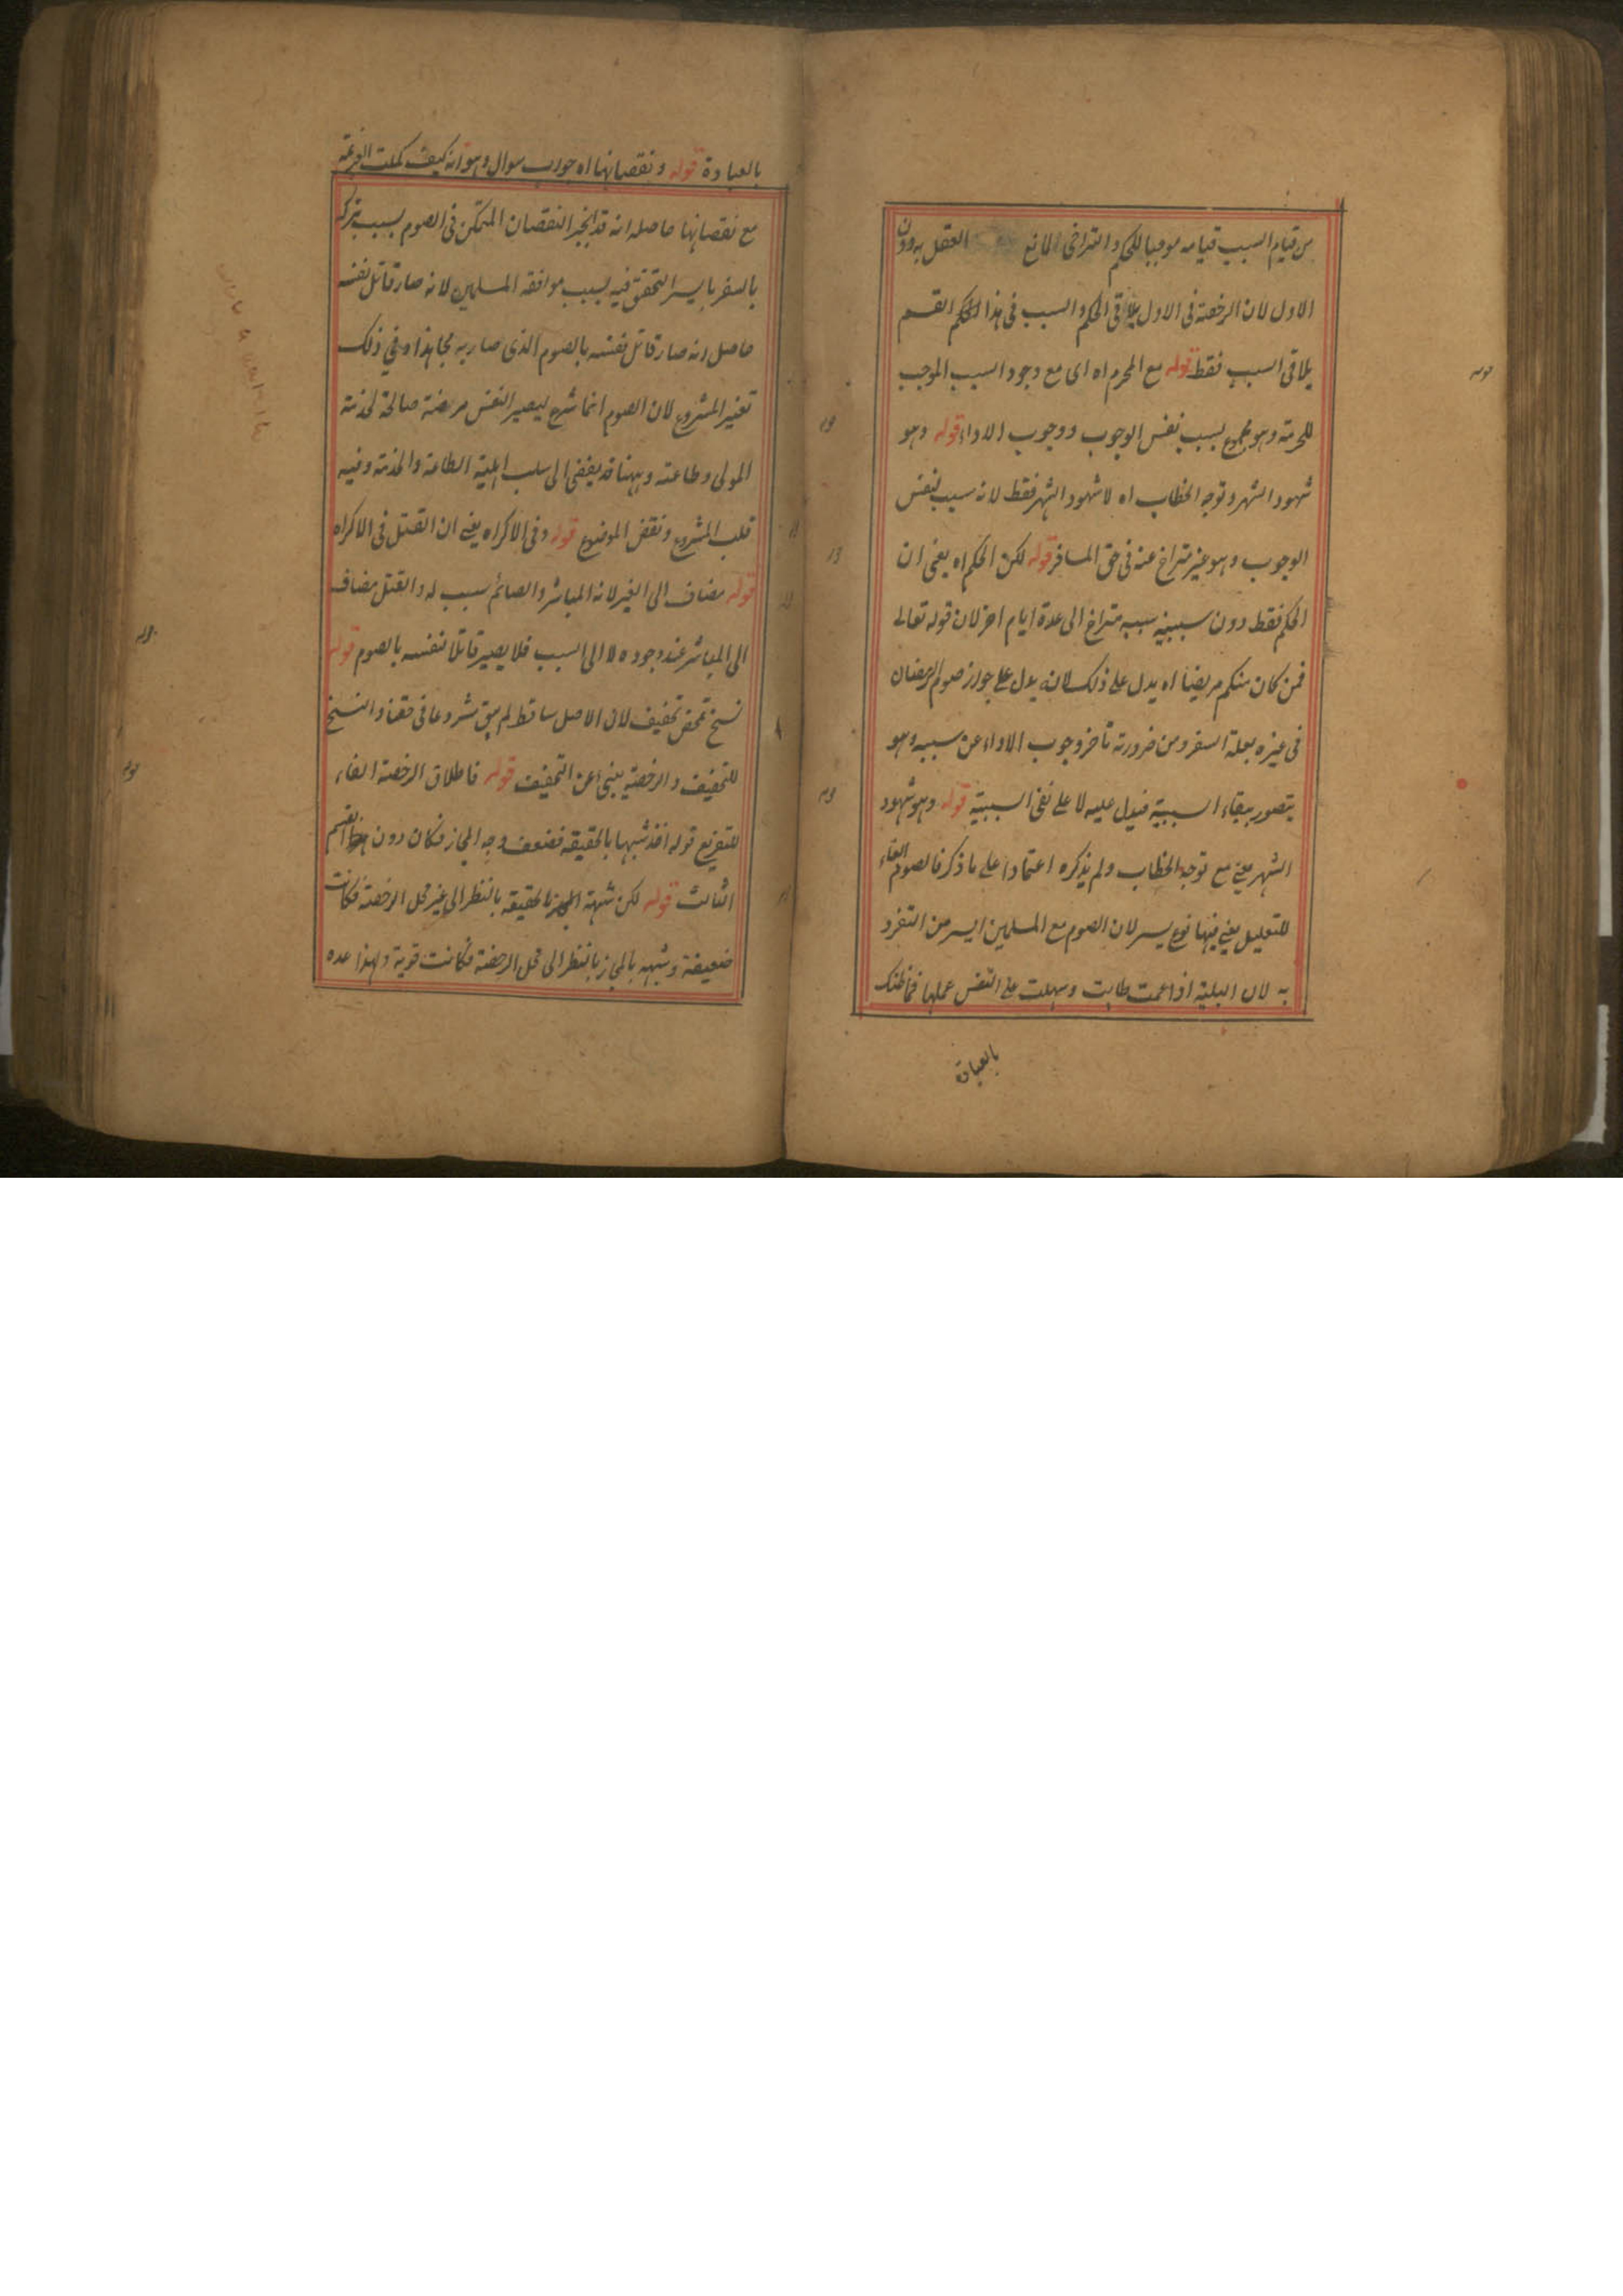 من قيام السبب قيامه موجبا للحكم والتراخى لمانع العقل به دون
الاول لان الرخصة فى الاول يلاقى الحكم والسبب فى هذا الحكم القسم
يلاقى السبب فقط قوله مع المحرم اه اى مع وجود السبب الموجب
للحرمة وهو مجموع بسبب نفس الوجوب ووجوب الاداء قوله وهو
شهود الشهر وتوجه الخطاب اه لا شهود الشهر فقط لانه سبب لنفس
الوجوب وهو غير متراخ عنه فى حق المسافر قوله لكن الحكم اه يعنى ان
الحكم فقط دون سببية سببه متراخ الى عدة ايام اخر لان قوله تعالى
فمن كان منكم مريضا اه يدل على ذلك لانه يدل على جواز صوم الرمضان
فى غيره بعلة السفر ومن ضرورته تأخر وجوب الاداء عن سببه وهو
يتصور ببقاء السببية فيدل عليه لا على نفى السببية قوله وهو شهود
الشهر يعنى مع توجه الخطاب ولم يذكره اعتمادا على ما ذكر فالصوم الفاء
للتعليل يعنى فيها نوع يسر لان الصوم مع المسلمين ايسر من التفرد
به لان البلية اذا عمت طابت وسهلت على النفس عملها فما ظنك
بالعبادة
بالعبادة قوله ونقصانها اه جواب سوال وهو انه كيف كملت العزيمة
مع نقصانها حاصله انه قد انجبر النقصان المتمكن فى الصوم بسبب تركه
بالسفر باليسر المتحقق فيه بسبب موافقة المسلمين لانه صار قاتل نفسه
حاصل انه صار قاتل نفسه بالصوم الذى صار به مجاهدا وفى ذلك
تغير المشروع لان الصوم انما شرع ليصير النفس مرتضة صالحة لخدمة
المولى وطاعته وههنا قد يفضى الى سلب اهلية الطاعة والخدمة وفيه
قلب المشروع ونقض الموضوع قوله وفى الاكراه يعنى ان القتل فى الاكراه
قوله مضاف الى الغير لانه المباشر والصائم سبب له والقتل مضاف
الى المباشر عند وجوده لا الى السبب فلا يصير قاتلا نفسه بالصوم قوله
نسخ تمحض تخفيف لان الاصل ساقط لم يبق مشروعا فى حقنا والنسخ
للتخفيف والرخصة ينبئ عن التخفيف قوله فاطلاق الرخصة الفاء
للتفريع قوله اخذ شبها بالحقيقة فضعف وجه المجاز فكان دون القسم
الثالث قوله لكن شبهة الحقيقة بالنظر الى غير محل الرخصة فكانت
ضعيفة وشبهه بالمجاز بالنظر الى محل الرخصة فكانت قوية ولهذا عده